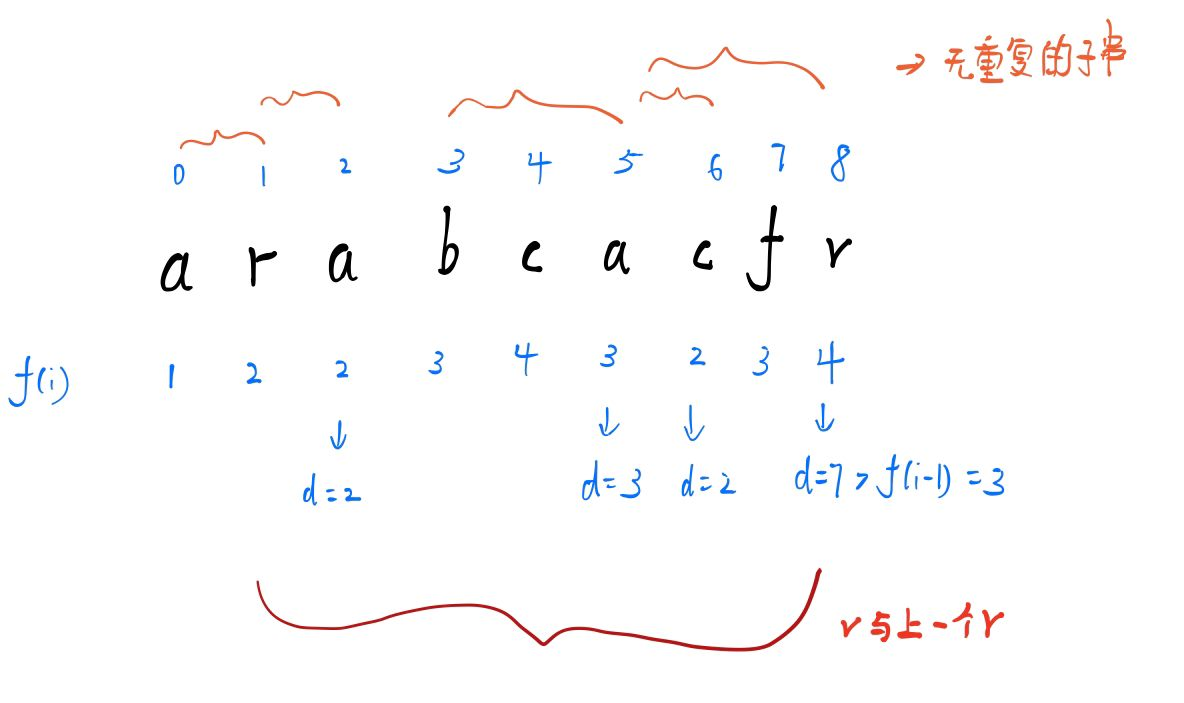 → 无重复的子串
0 1 2 3 4 5 6 7 8
a r a b c a c f r
f(i) 1 2 2 3 4 3 2 3 4
↓ ↓ ↓ ↓
d=2 d=3 d=2 d=7 > f(i-1) = 3
r与上一个r